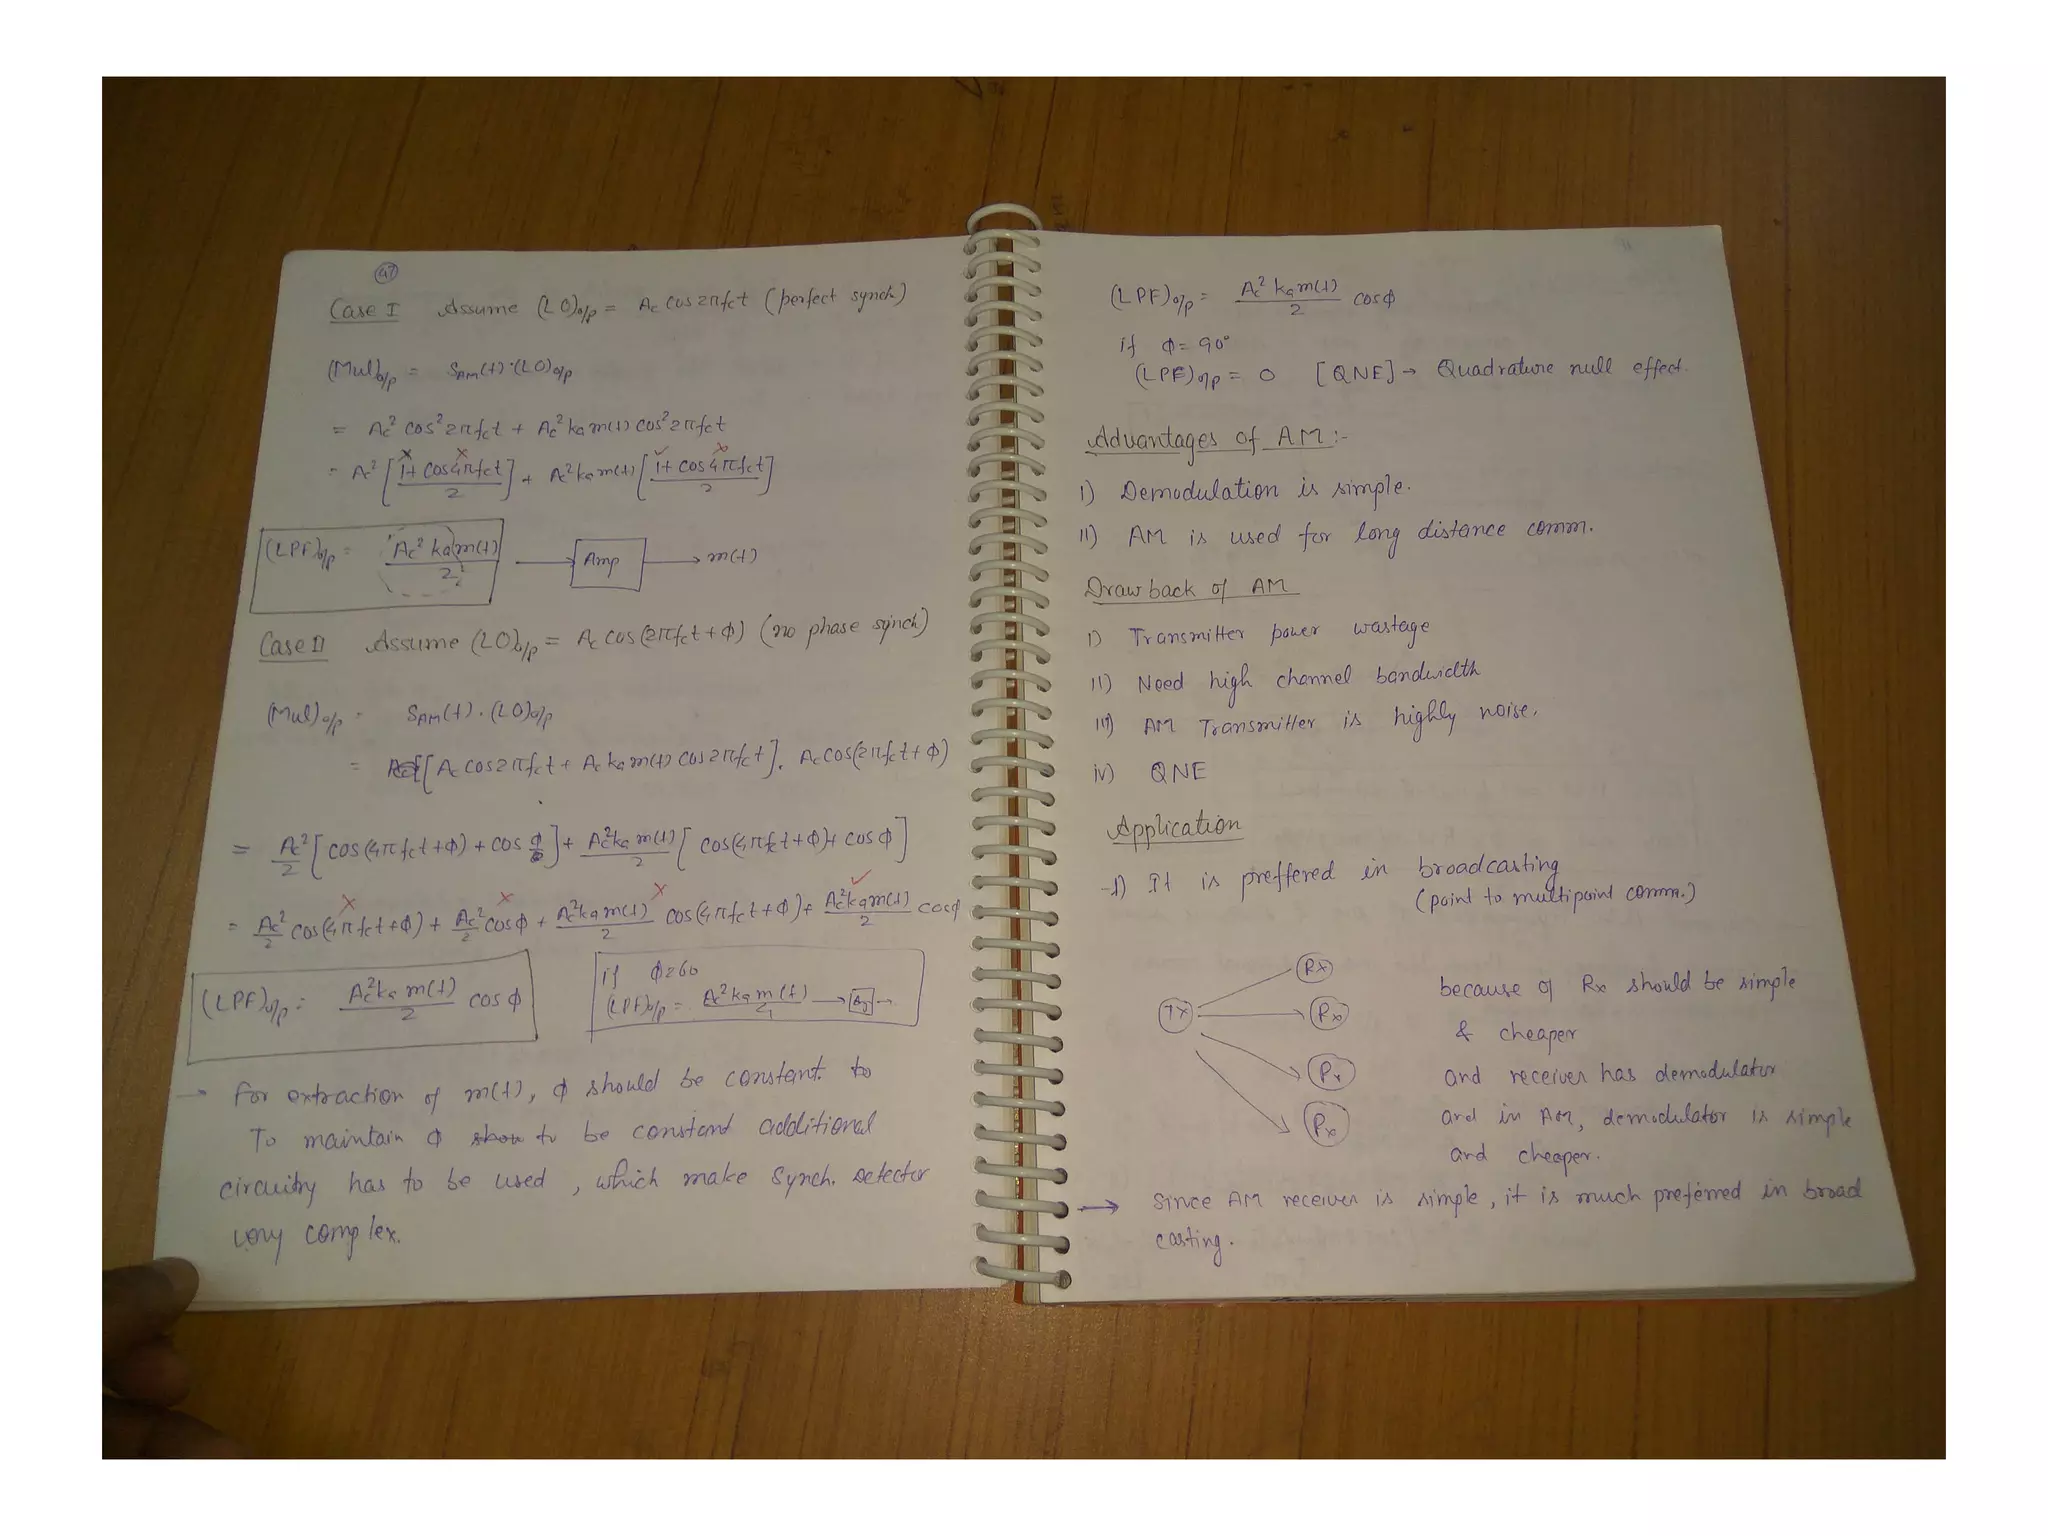 47
Case I Assume (LO)o/p = Ac cos2πfct (perfect synch.)
(Mul)o/p = SAM(t)·(LO)o/p
= Ac² cos²2πfct + Ac² ka m(t) cos²2πfct
= Ac² [1+cos4πfct / 2] + Ac² ka m(t) [1+cos4πfct / 2]
(LPF)o/p = Ac² ka m(t) / 2 → Amp → m(t)
Case II Assume (LO)o/p = Ac cos(2πfct+φ) (no phase synch.)
(Mul)o/p = SAM(t).(LO)o/p
= [Ac cos2πfct + Ac ka m(t) cos2πfct]. Ac cos(2πfct+φ)
= Ac²/2 [cos(4πfct+φ) + cos φ] + Ac² ka m(t)/2 [cos(4πfct+φ)+ cos φ]
= Ac²/2 cos(4πfct+φ) + Ac²/2 cosφ + Ac² ka m(t)/2 cos(4πfct+φ)+ Ac² ka m(t)/2 cosφ
(LPF)o/p = Ac² ka m(t)/2 cos φ
if
(LPF)o/p = Ac² ka m(t)/2 →
→ For extraction of m(t), φ should be constant. to
To maintain φ to be constant additional
circuitry has to be used, which make Synch. Detector
very complex.
(LPF)o/p = Ac² ka m(t)/2 cosφ
if φ = 90°
(LPF)o/p = 0 [QNE] → Quadrature null effect.
Advantages of AM:-
I) Demodulation is simple.
II) AM is used for long distance comm.
Drawback of AM
I) Transmitter power wastage
II) Need high channel bandwidth
III) AM Transmitter is highly noise.
iv) QNE
Application
-1) It is preffered in broadcasting
(point to multipoint comm.)
Tx
Rx
Rx
Rx
Rx
because of Rx should be simple
& cheaper
and receiver has demodulator
and in AM, demodulator is simple
and cheaper.
→ Since AM receiver is simple, it is much preferred in broad
casting.